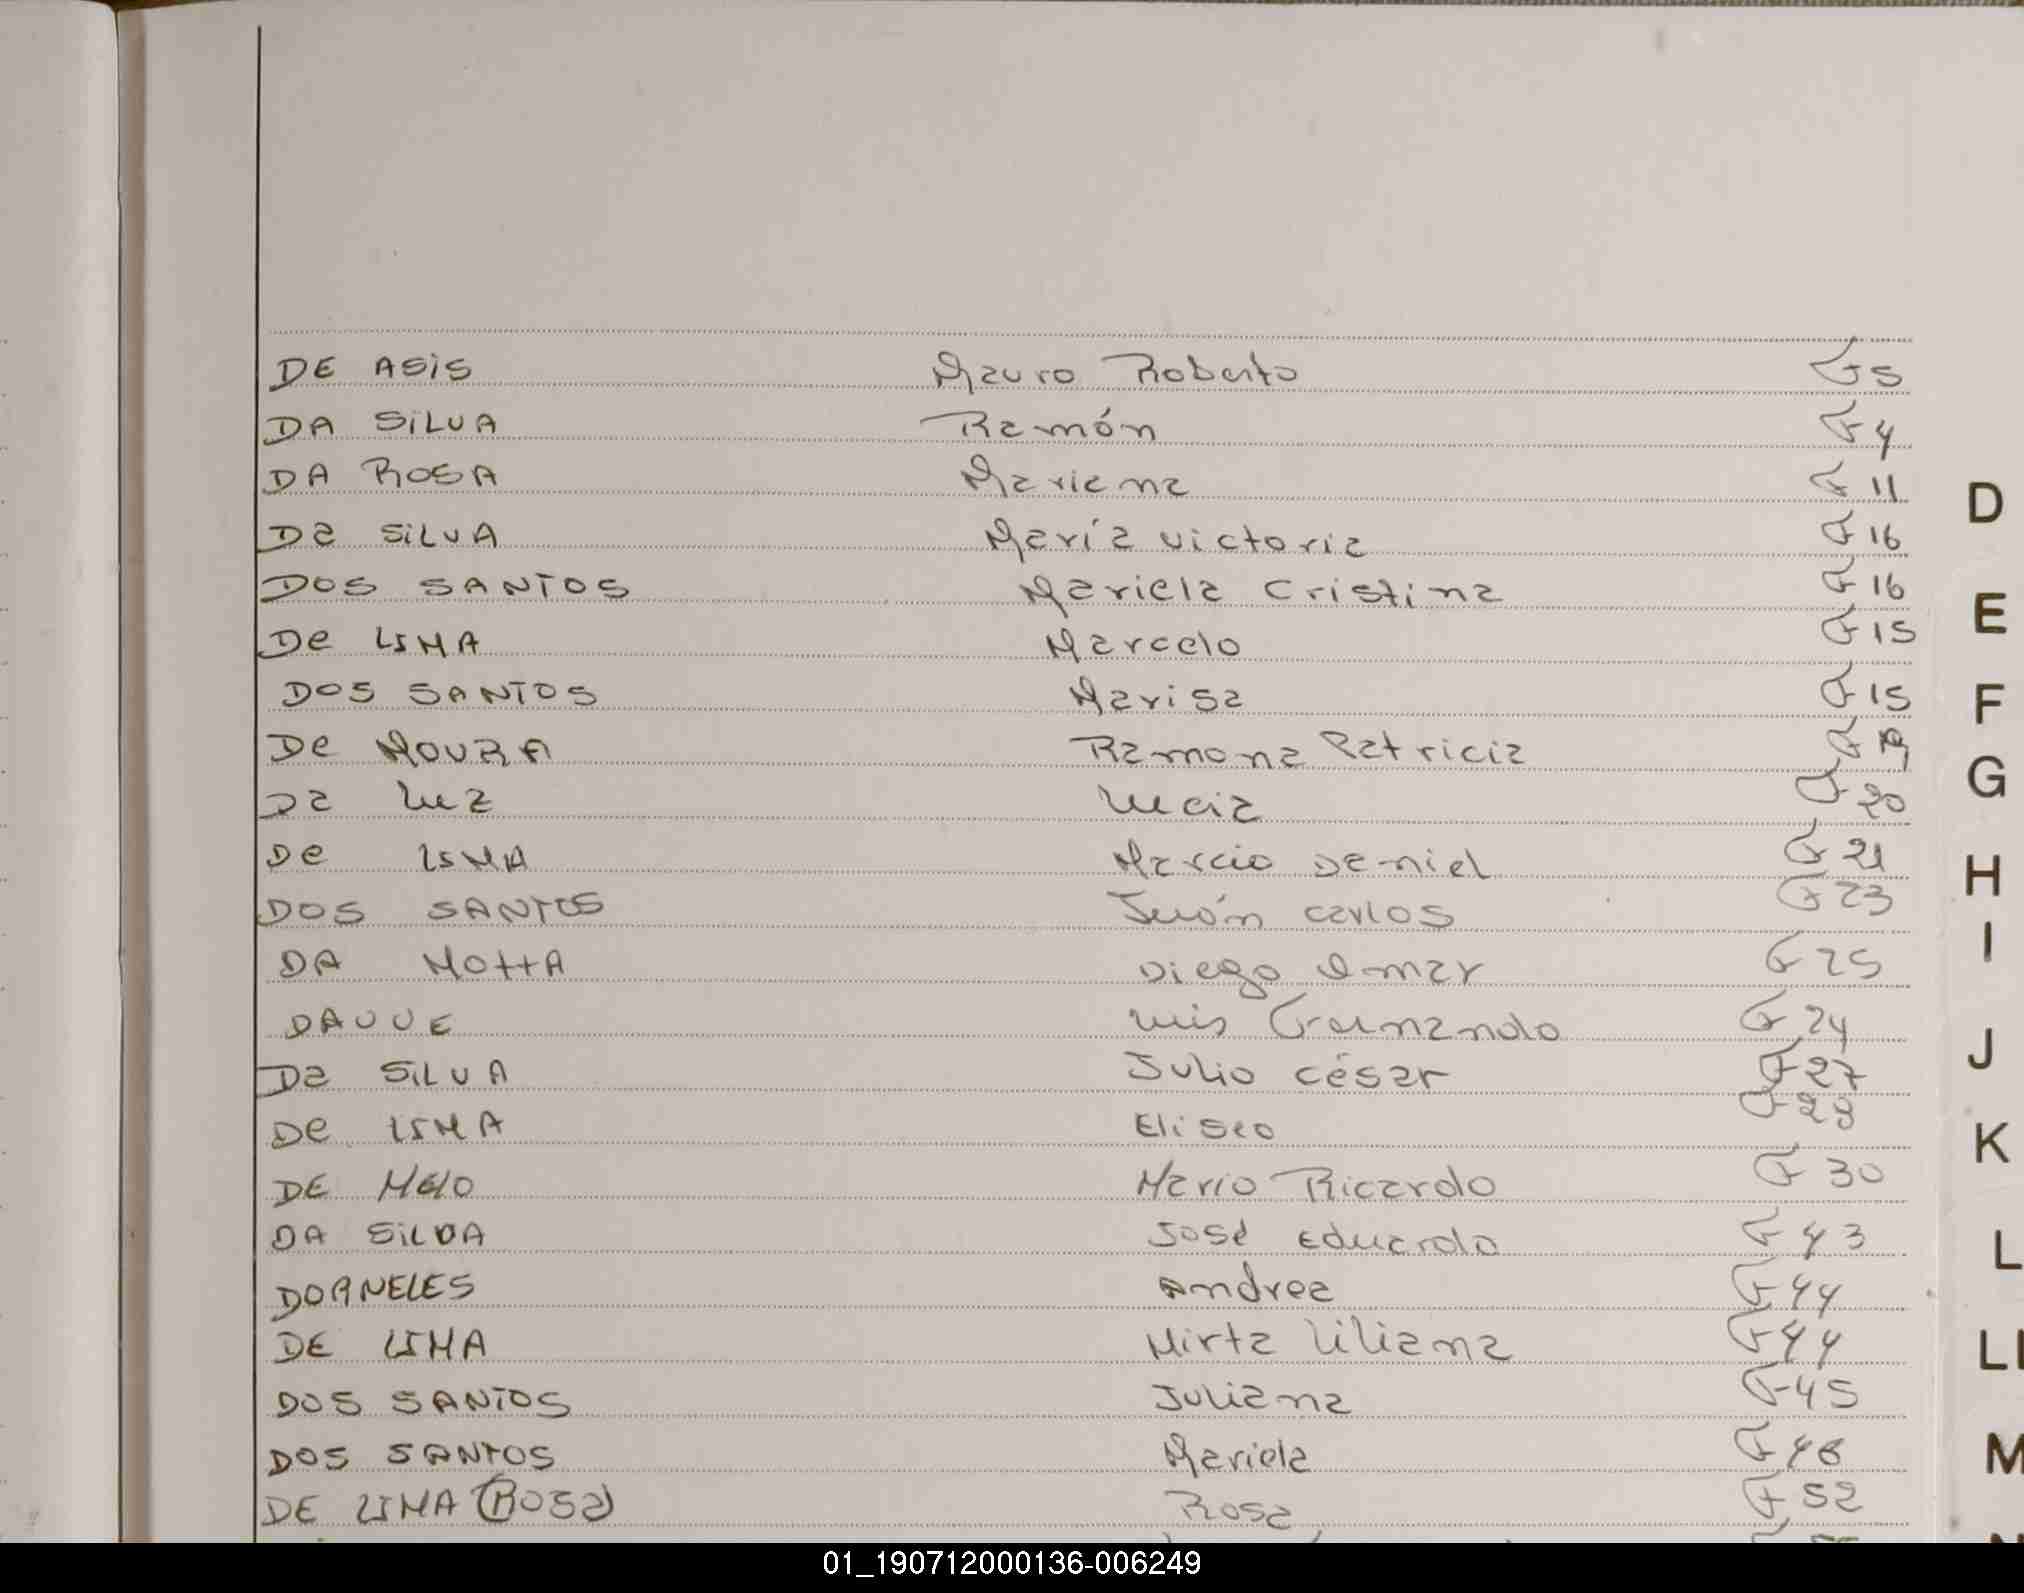 DE ASIS Mauro Roberto F 5
DA SILVA Ramón F 4
DA ROSA Mariana F 11
Da SILVA María Victoria F 16
DOS SANTOS Mariela Cristina F 16
De LIMA Marcelo F 15
DOS SANTOS Marisa F 15
De MOURA Ramona Patricia F
Da Luz Lucia F 20
De LIMA Marcio Daniel F 21
DOS SANTOS Juán Carlos F 23
DA MOTTA Diego Omar F 25
DAVVE Luis Fernando F 24
Da SILVA Julio César F 27
De LIMA Eliseo F
DE MELO Mario Ricardo F 30
DA SILVA José Eduardo F 43
DORNELES Andrea F 44
DE LIMA Mirta Liliana F 44
DOS SANTOS Juliana F 45
DOS SANTOS Mariela F 46
DE LIMA (Rosa) Rosa F 52
D
E
F
G
H
I
J
K
L
LL
M
01_190712000136-006249